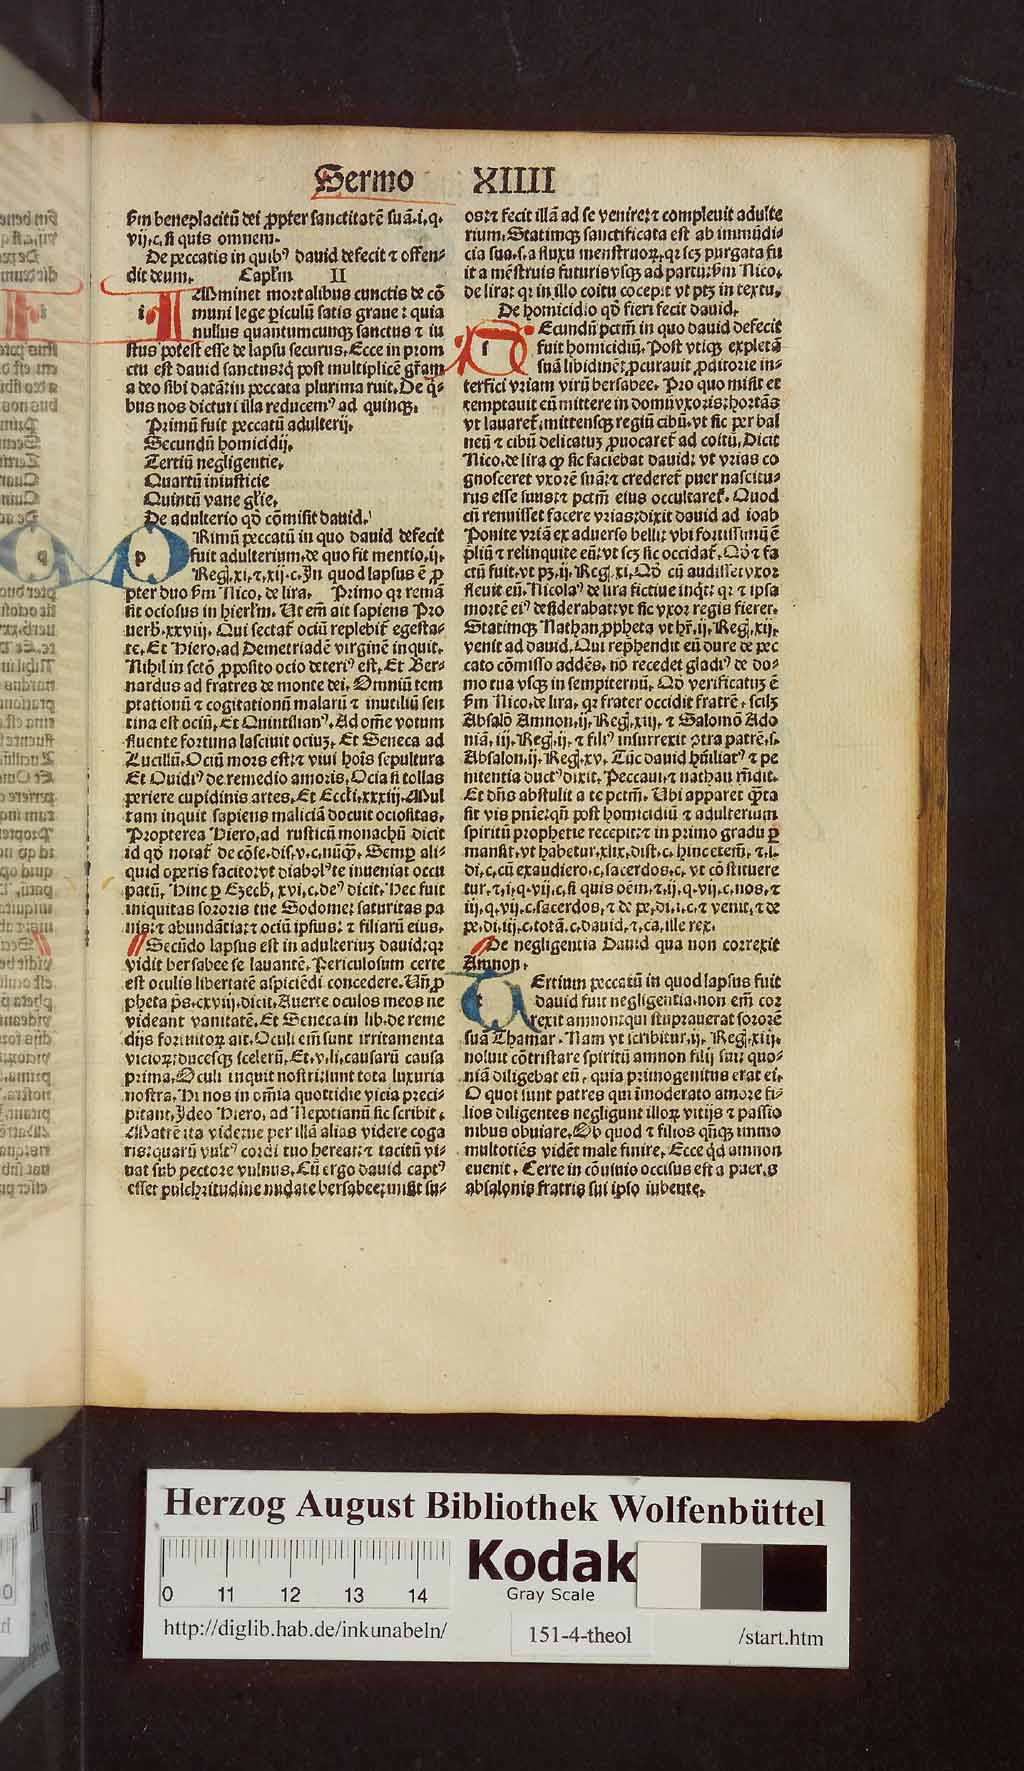 Sermo XIIII
ẜm beneplacitū dei ꝓpter sanctitatē suā.i.q.
vij.c.si quis omnem.
De peccatis in quibꝰ dauid defecit ⁊ offen-
dit deum. Caplm̄ II
IMminet mortalibus cunctis de cō
muni lege ꝑiculū satis graue: quia
nullus quantumcunqꝫ sanctus ⁊ iu
stus potest esse de lapsu securus. Ecce in prom
ctu est dauid sanctus:q̄ post multiplicē gr̄am
a deo sibi datā:in peccata plurima ruit. De q̄-
bus nos dicturi illa reducemꝰ ad quinqꝫ.
Primū fuit peccatū adulterij.
Secundū homicidij.
Tertiū negligentie.
Quartū iniusticie
Quintū vane gl̄ie.
De adulterio qď cōmisit dauid.
PRimū peccatū in quo dauid defecit
fuit adulterium.de quo fit mentio.ij.
Reg.xi.⁊.xij.c.In quod lapsus ē ꝓ
pter duo ẜm Nico.de lira. Primo qꝛ remā
sit ociosus in hierl̄m. Ut em̄ ait sapiens Pro
uerb.xxviij. Qui sectat̄ ociū replebit̄ egesta-
te. Et Hiero.ad Demetriadē virginē inquit.
Nihil in sctō ꝓposito ocio deteriꝰ est. Et Ber-
nardus ad fratres de monte dei. Omniū tem
ptationū ⁊ cogitationū malarū ⁊ inutiliū sen
tina est ociū. Et Quintilianꝰ. Ad om̄e votum
fluente fortuna lasciuit ociuꝫ. Et Seneca ad
Lucillū. Ociū mors est:⁊ viui hoīs sepultura
Et Ouidiꝰ de remedio amoris. Ocia si tollas
periere cupidinis artes. Et Eccl̄i.xxxiij. Mul
tam inquit sapiens maliciā docuit ociositas.
Propterea Hiero.ad rusticū monachū dicit
id qď notat̄ de cōse.dis.v.c.nūqꝫ. Semꝑ ali-
quid operis facito:vt diabolꝰ te inueniat occu
patū. Hinc ꝑ Ezech.xvi.c.deꝰ dicit. Hec fuit
iniquitas sororis tue Sodome: saturitas pa
nis:⁊ abundātia:⁊ ociū ipsius: ⁊ filiarū eius.
Secūdo lapsus est in adulteriuꝫ dauid:qꝛ
vidit bersabee se lauantē. Periculosum certe
est oculis libertatē aspiciēdi concedere. Un̄ ꝓ
pheta ps̄.cxviij.dicit. Auerte oculos meos ne
videant vanitatē. Et Seneca in lib.de reme
dijs fortuitoꝝ ait. Oculi em̄ sunt irritamenta
vicioꝝ:ducesqꝫ scelerū. Et.v.li.causarū causa
prima. Oculi inquit nostri:sunt tota luxuria
nostra. Hi nos in om̄ia quottidie vicia preci-
pitant. Ideo Hiero. ad Nepotianū sic scribit.
Matrē ita videme per illā alias videre coga
ris:quarū vultꝰ cordi tuo hereat:⁊ tacitū vi-
uat sub pectore vulnus. Cū ergo dauid captꝰ
esset pulchritudine nudate bersabee:misit su-
os:⁊ fecit illā ad se venire:⁊ compleuit adulte
rium. Statimqꝫ sanctificata est ab immūdi-
cia sua.s.a fluxu menstruoꝝ.qꝛ scꝫ purgata fu
it a mēstruis futuris vsqꝫ ad partū:ẜm Nico.
de lira: qꝛ in illo coitu cōcepit vt ptꝫ in textu.
De homicidio qď fieri fecit dauid.
SEcundū pctm̄ in quo dauid defecit
fuit homicidiū. Post vtiqꝫ expletā
suā libidinē:ꝓcurauit ꝓditorie in-
terfici vriam virū bersabee. Pro quo misit et
temptauit eū mittere in domū vxoris:hortās
vt lauaret̄:mittensqꝫ regiū cibū.vt sic per bal
neū ⁊ cibū delicatuꝫ ꝓuocaret̄ ad coitū. Dicit
Nico.de lira ꝙ sic faciebat dauid: vt vrias co
gnosceret vxorē suā:⁊ crederet̄ puer nascitu-
rus esse suus:⁊ pctm̄ eius occultaret̄. Quod
cū renuisset facere vrias:dixit dauid ad ioab
Ponite vriā ex aduerso belli: vbi fortissimū ē
p̄liū ⁊ relinquite eū: vt scꝫ sic occidat̄. Qď ⁊ fa
ctū fuit.vt pꝫ.ij.Reg.xi. Qď cū audisset vxor
fleuit eū. Nicolaꝰ de lira fictiue inq̄t: qꝛ ⁊ ipsa
mortē eiꝰ desiderabat:vt sic vxor regis fieret.
Statimqꝫ Nathan ꝓpheta vt hr̄.ij.Reg.xij.
venit ad dauid. Qui rephendit eū dure de pec
cato cōmisso addēs. nō recedet gladiꝰ de do-
mo tua vsqꝫ in sempiternū. Qď verificatuꝫ ē
ẜm Nico.de lira. qꝛ frater occidit fratrē. scilꝫ
Absalō Amnon.ij.Reg.xiij. ⁊ Salomō Ado
niā.iij.Reg.ij.⁊ filiꝰ insurrexit ꝯtra patrē.s.
Absalon.ij.Reg.xv. Tūc dauid hūiliatꝰ ⁊ pe
nitentia ductꝰ dixit. Peccaui.⁊ nathan rn̄dit.
Et dn̄s abstulit a te pctm̄. Ubi apparet q̄ta
sit vis pnīe:qn̄ post homicidiū ⁊ adulterium
spiritū prophetie recepit:⁊ in primo gradu ꝑ
mansit.vt habetur.xlix.dist.c.hinc etem̄.⁊.l.
di.c.cū exaudiero.c.sacerdos.c. vt cōstituere
tur.⁊.i.q.vij.c.si quis oēm.⁊.ij.q.vij.c.nos.⁊
iij.q.vij.c.sacerdos.⁊ de pe.di.i.c.⁊ venit.⁊ de
pe.di.iij.c.totā.c.dauid.⁊.ca.ille rex.
De negligentia Dauid qua non correxit
Amnon.
TErtium peccatū in quod lapsus fuit
dauid fuit negligentia.non em̄ cor
rexit amnon:qui stuprauerat sororē
suā Thamar. Nam vt scribitur.ij.Reg.xiij.
noluit cōtristare spiritū amnon filij sui: quo-
niā diligebat eū. quia primogenitus erat ei.
O quot sunt patres qui īmoderato amore fi-
lios diligentes negligunt illoꝝ vitijs ⁊ passio
nibus obuiare. Ob quod ⁊ filios qn̄qꝫ immo
multotiēs vidēt male finire. Ecce q̄d amnon
euenit. Certe in cōuiuio occisus est a pueris
absalonis fratris sui ipso iubente.
Herzog August Bibliothek Wolfenbüttel
0 11 12 13 14
Kodak
Gray Scale
http://diglib.hab.de/inkunabeln/
151-4-theol
/start.htm